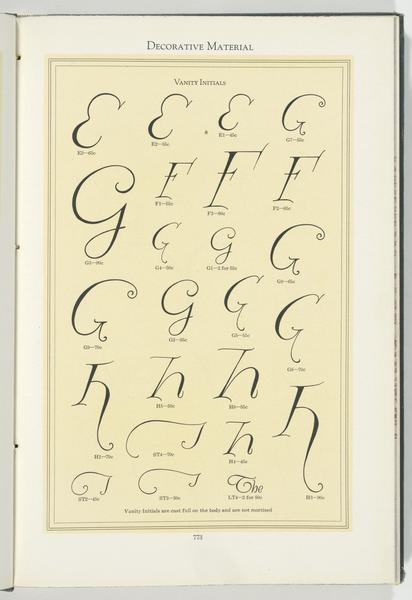 Decorative Material
Vanity Initials
E
E3—65c
E
E2—55c
E
E1—45c
G
G7—55c
G
G3—90c
F
F1—55c
F
F3—80c
F
F2—65c
G
G4—50c
G
G1—2 for 55c
G
G8—65c
G
G9—70c
G
G2—65c
G
G5—55c
G
G6—70c
h
H2—70c
h
H5—50c
h
H6—65c
h
H3—90c
ST4—70c
h
H4—45c
ST2—45c
ST3—50c
The
LT4—2 for 50c
Vanity Initials are cast full on the body and are not mortised
773